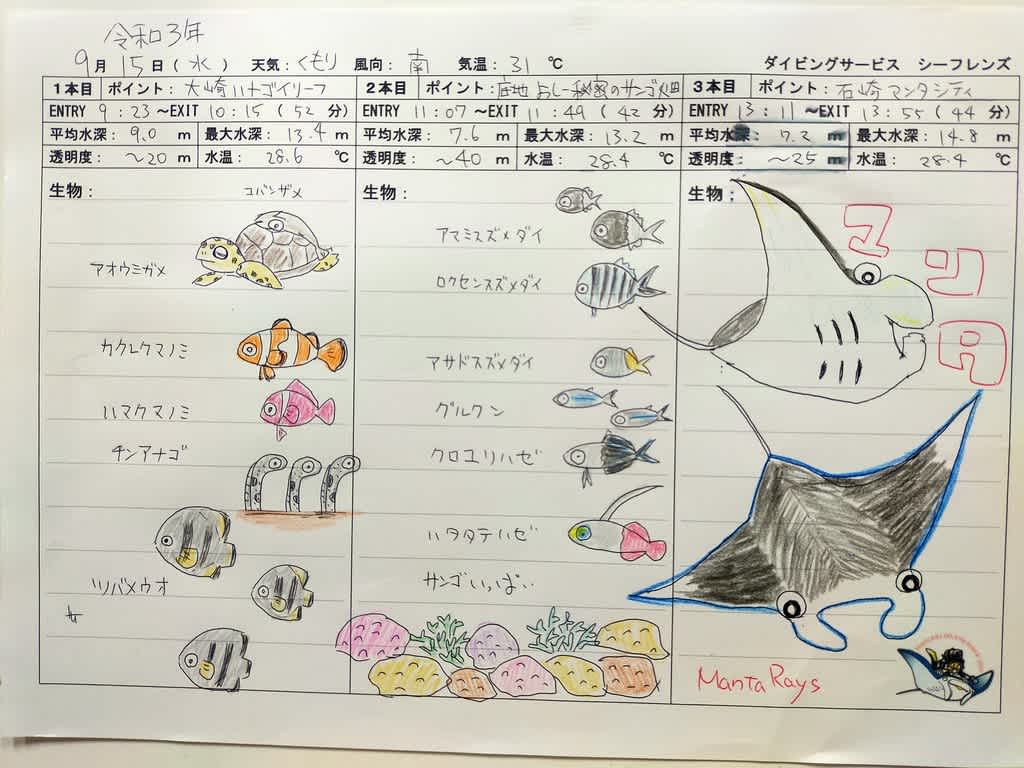 令和3年
9月15日(水) 天気:くもり 風向:南 気温:31 ℃ ダイビングサービス シーフレンズ
1本目 ポイント:大崎ハナゴイリーフ
ENTRY 9:23～EXIT 10:15 (52 分)
平均水深: 9.0 m 最大水深: 13.4 m
透明度: ～20 m 水温: 28.6 ℃
生物:
コバンザメ
アオウミガメ
カクレクマノミ
ハマクマノミ
チンアナゴ
ツバメウオ
2本目 ポイント:底地 おしー秘密のサンゴ畑
ENTRY 11:07～EXIT 11:49 (42 分)
平均水深: 7.6 m 最大水深: 13.2 m
透明度: ～40 m 水温: 28.4 ℃
生物:
アマミスズメダイ
ロクセンスズメダイ
アサドスズメダイ
グルクン
クロユリハゼ
ハタタテハゼ
サンゴいっぱい
3本目 ポイント:石崎マンタシティ
ENTRY 13:11～EXIT 13:55 (44 分)
平均水深: 7.2 m 最大水深: 14.8 m
透明度: ～25 m 水温: 28.4 ℃
生物:
マンタ
Manta Rays